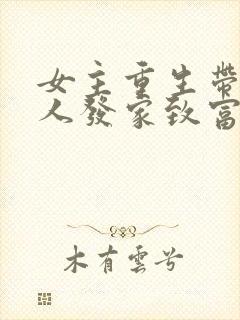 女主重生帶
人發家致富
木有雲兮